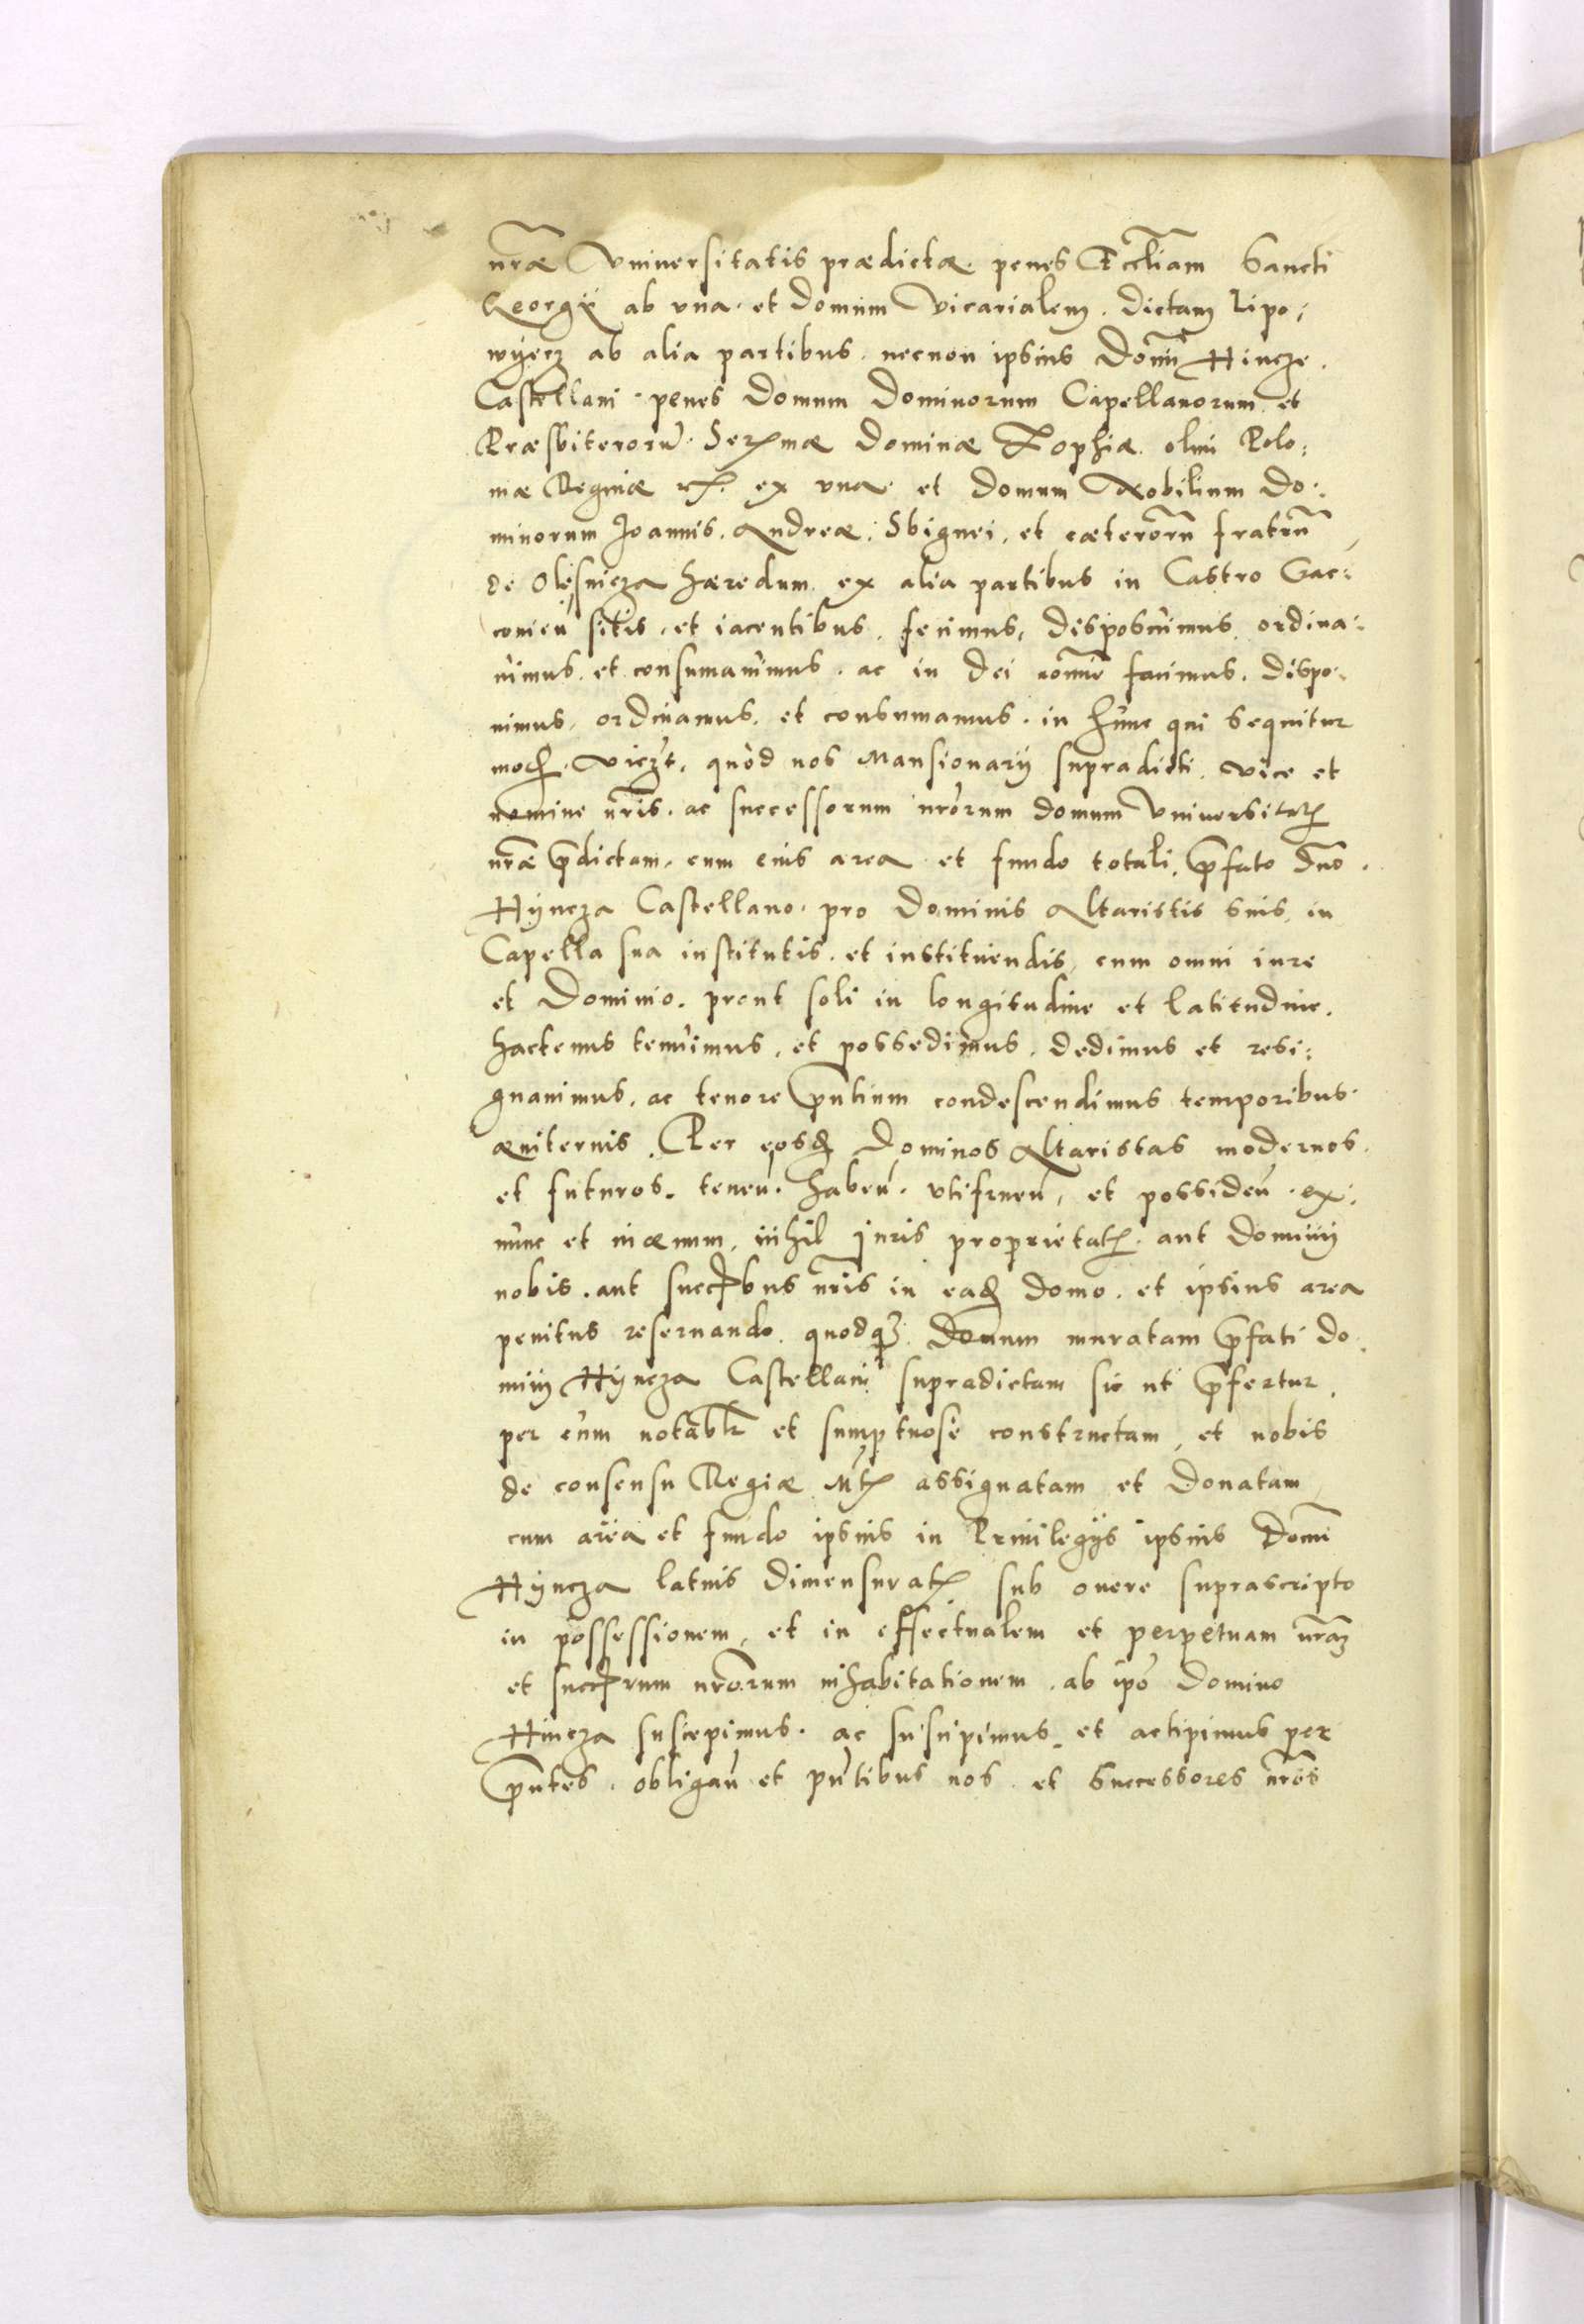 nrãe Vniuersitatis prædictæ penes Eccłiam Sancti
Georgÿ ab vna et domum Vicarialem dictam Lipo:
wyecz ab alia partibus necnon ipsius Domi Hincze
Castellani penes domum Dominorum Capellanorum et
Præsbiterorũ Serenissmæ Dominæ Zophiæ olim Polo:
niæ Reginæ etc. ex vna et domum Nobilium Do:
minorum Joannis, Andreæ, Sbignei, et cæterorũ fratrũ
de Oleśnicza hæredum ex alia partibus in Castro Crac:
couien̄ sitis, et iacentibus, fecimus, disposuimus, ordina:
uimus et consumauimus, ac in Dei noīe facimus, dispo:
nimus, ordinamus, et consumamus in hunc qui sequitur
modum. Viczt, quòd nos Mansionarÿ supradicti, vice et
nomine nris ac successorum nrõrum domum Vniuersitatis
nrãe p̄dictam, cum eius area et fundo totali, p̄fato Dño
Hÿncza Castellano pro Dominis Altaristis suis in
Capella sua institutis et instituendis, cum omni iure
et Dominio, prout soli in longitudine et latitudine
hactenus tenuimus, et possedimus, dedimus et resi:
gnauimus, ac tenore p̄ntium condescendimus temporibus
æuiternis. Per eosdem Dominos Altaristas modernos
et futuros, tenen̄, haben̄, vtifruen̄, et possiden̄ ex
nunc et inæuum, nihil juris proprietatis aut dominÿ
nobis, aut succrbus nris in eadem domo et ipsius area
penitus reseruando, quodq3 Domum muratam p̄fati do:
minÿ Hÿncza Castellani supradictam sic ut p̄fertur
per eum notablr et sumptuose constructam, et nobis
de consensu Regiæ Mtis assignatam et donatam
cum area et fundo ipsius in Priuilegÿs ipsius Domi
Hÿncza latius dimensuratis sub onere suprascripto
in possessionem, et in effectualem et perpetuam nrãm
et succrum nrõrum inhabitationem ab ipo Domino
Hincza suscepimus, ac suscipimus et accipimus per
p̄ntes, obligan̄ et p̄ntibus nos et successores nrõs